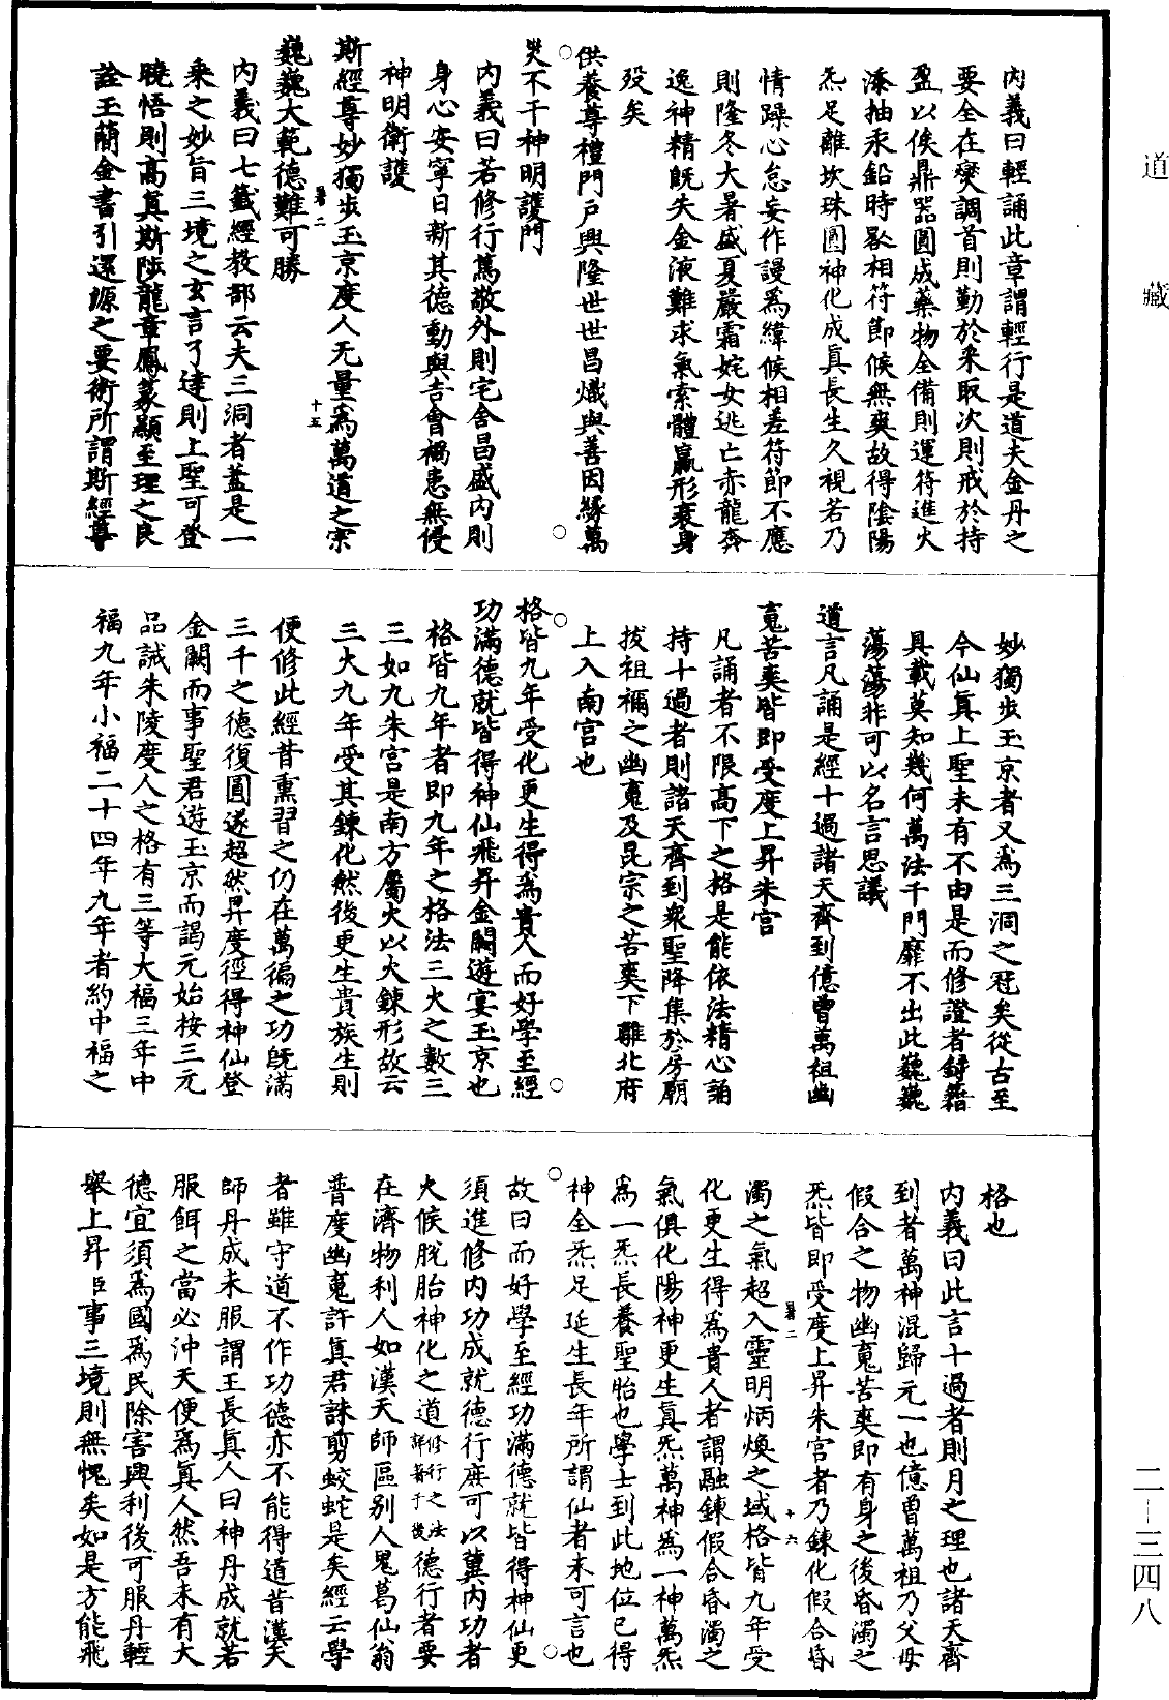 道藏
內義曰輕誦此章謂輕行是道夫金丹之
要全在燮調首則勤於采取次則戒於持
盈以俟鼎器圓成藥物全備則運符進火
添抽汞鉛時晷相符節候無爽故得陰陽
炁足離坎珠圓神化成真長生久視若乃
情躁心怠妄作謾為緯候相差符節不應
則隆冬大暑盛夏嚴霜姹女逃亡赤龍奔
逸神精旣失金液難求氣索體羸形衰身
歿矣
供養尊禮門戶興隆世世昌熾與善因緣萬
災不干神明護門
內義曰若修行篤敬外則宅舍昌盛內則
身心安寧日新其德動與吉會禍患無侵
神明衛護
斯經尊妙獨步玉京度人无量為萬道之宗
巍巍大範德難可勝
內義曰七籤經教部云夫三洞者蓋是一
乘之妙旨三境之玄言了達則上聖可登
曉悟則高真斯陟龍章鳳篆顯至理之良
詮玉簡金書引還源之要術所謂斯經尊
妙獨步玉京者又為三洞之冠矣從古至
今仙真上聖未有不由是而修證者錄籍
具載莫知幾何萬法千門靡不出此巍巍
蕩蕩非可以名言思議
道言凡誦是經十過諸天齊到億曾萬祖幽
䰟苦爽皆即受度上昇朱宮
凡誦者不限高下之格是能依法精心誦
持十過者則諸天齊到衆聖降集於房廟
拔祖禰之幽䰟及昆宗之苦爽下離北府
上入南宮也
格皆九年受化更生得為貴人而好學至經
功滿德就皆得神仙飛昇金闕遊宴玉京也
格皆九年者即九年之格法三火之數三
三如九朱宮是南方屬火以火鍊形故云
三火九年受其鍊化然後更生貴族生則
便修此經昔熏習之仍在萬徧之功旣滿
三千之德復圓遂超然昇度徑得神仙登
金闕而事聖君遊玉京而謁元始按三元
品誡朱陵度人之格有三等大福三年中
福九年小福二十四年九年者約中福之
格也
內義曰此言十過者則月之理也諸天齊
到者萬神混歸元一也億曾萬祖乃父母
假合之物幽䰟苦爽即有身之後昏濁之
炁皆即受度上昇朱宮者乃鍊化假合昏
濁之氣超入靈明炳煥之域格皆九年受
化更生得為貴人者謂融鍊假合昏濁之
氣俱化陽神更生真炁萬神為一神萬炁
為一炁長養聖胎也學士到此地位已得
神全炁足延生長年所謂仙者未可言也
故曰而好學至經功滿德就皆得神仙更
須進修內功成就德行庶可以冀內功者
火候脫胎神化之道修行之法詳著于後德行者要
在濟物利人如漢天師區別人鬼葛仙翁
普度幽䰟許真君誅剪蛟蛇是矣經云學
者雖守道不作功德亦不能得道昔漢天
師丹成未服謂王長真人曰神丹成就若
服餌之當必沖天便為真人然吾未有大
德宜須為國為民除害興利後可服丹輕
舉上昇臣事三境則無愧矣如是方能飛
二-三四八